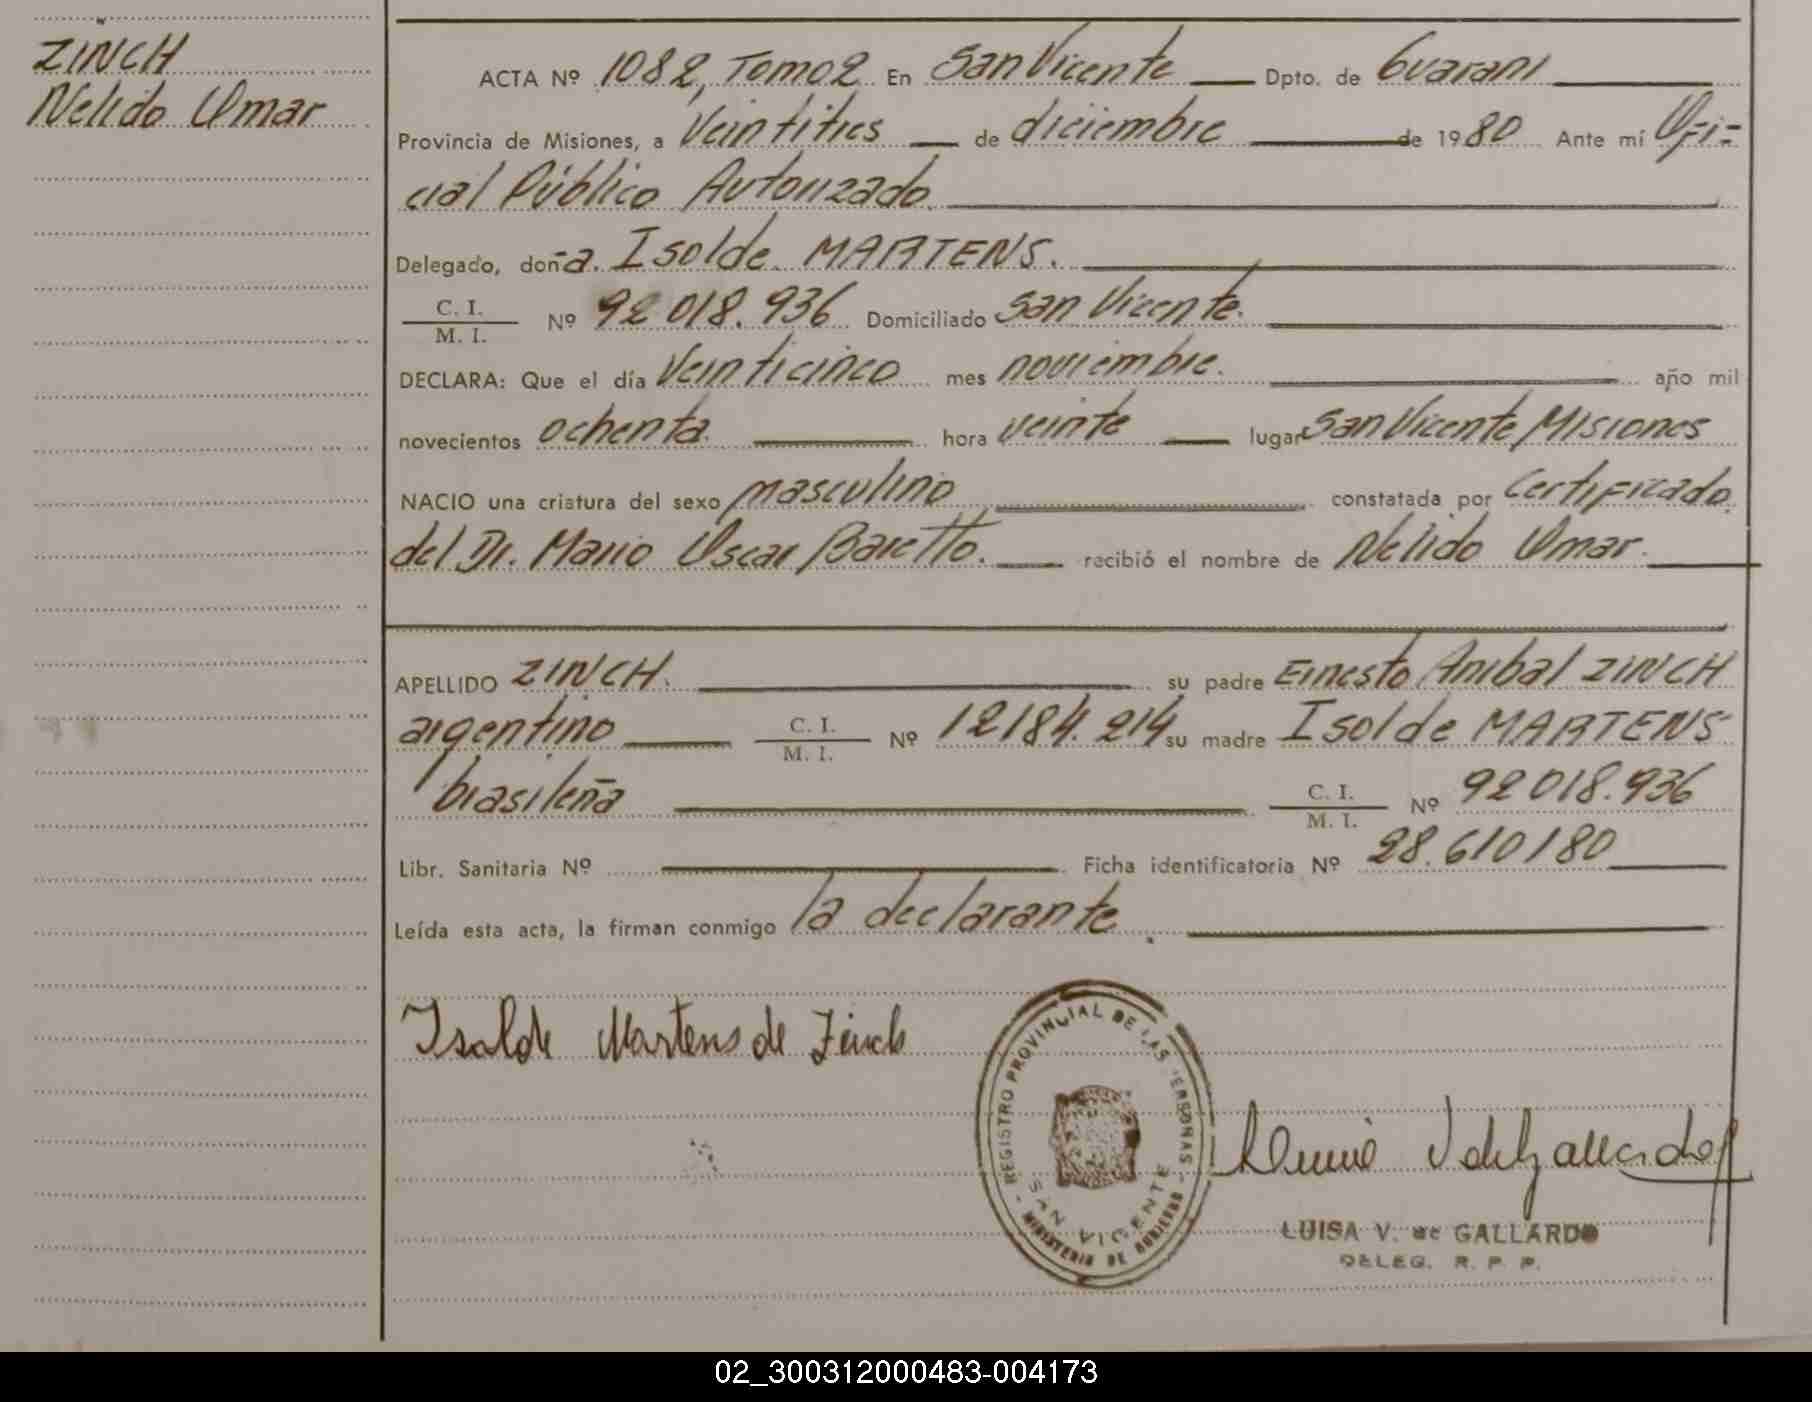 ZINCH
Nelido Omar
ACTA Nº 1082, Tomo 2 En San Vicente Dpto. de Guaraní
Provincia de Misiones, a Veintitres de diciembre de 1980 Ante mí Ofi=
cial Público Autorizado.
Delegado, doña. Isolde MARTENS.
C. I.
M. I.
Nº 92 018.936 Domiciliado San Vicente.
DECLARA: Que el día Veinticinco mes noviembre. año mil
novecientos ochenta. hora veinte lugar San Vicente Misiones
NACIO una criatura del sexo masculino constatada por Certificado
del Dr. Mario Oscar Baretto. recibió el nombre de Nelido Omar.
APELLIDO ZINCH. su padre Ernesto Anibal ZINCH
argentino C. I. / M. I. Nº 12184.214 su madre Isolde MARTENS
brasileña C. I. / M. I. Nº 92 018.936
Libr. Sanitaria Nº Ficha identificatoria Nº 28.610180
Leída esta acta, la firman conmigo la declarante.
Isolde Martens de Zinch
REGISTRO PROVINCIAL DE LAS PERSONAS
SAN VICENTE
MINISTERIO DE GOBIERNO
LUISA V. de GALLARDO
DELEG. R. P. P.
02_300312000483-004173